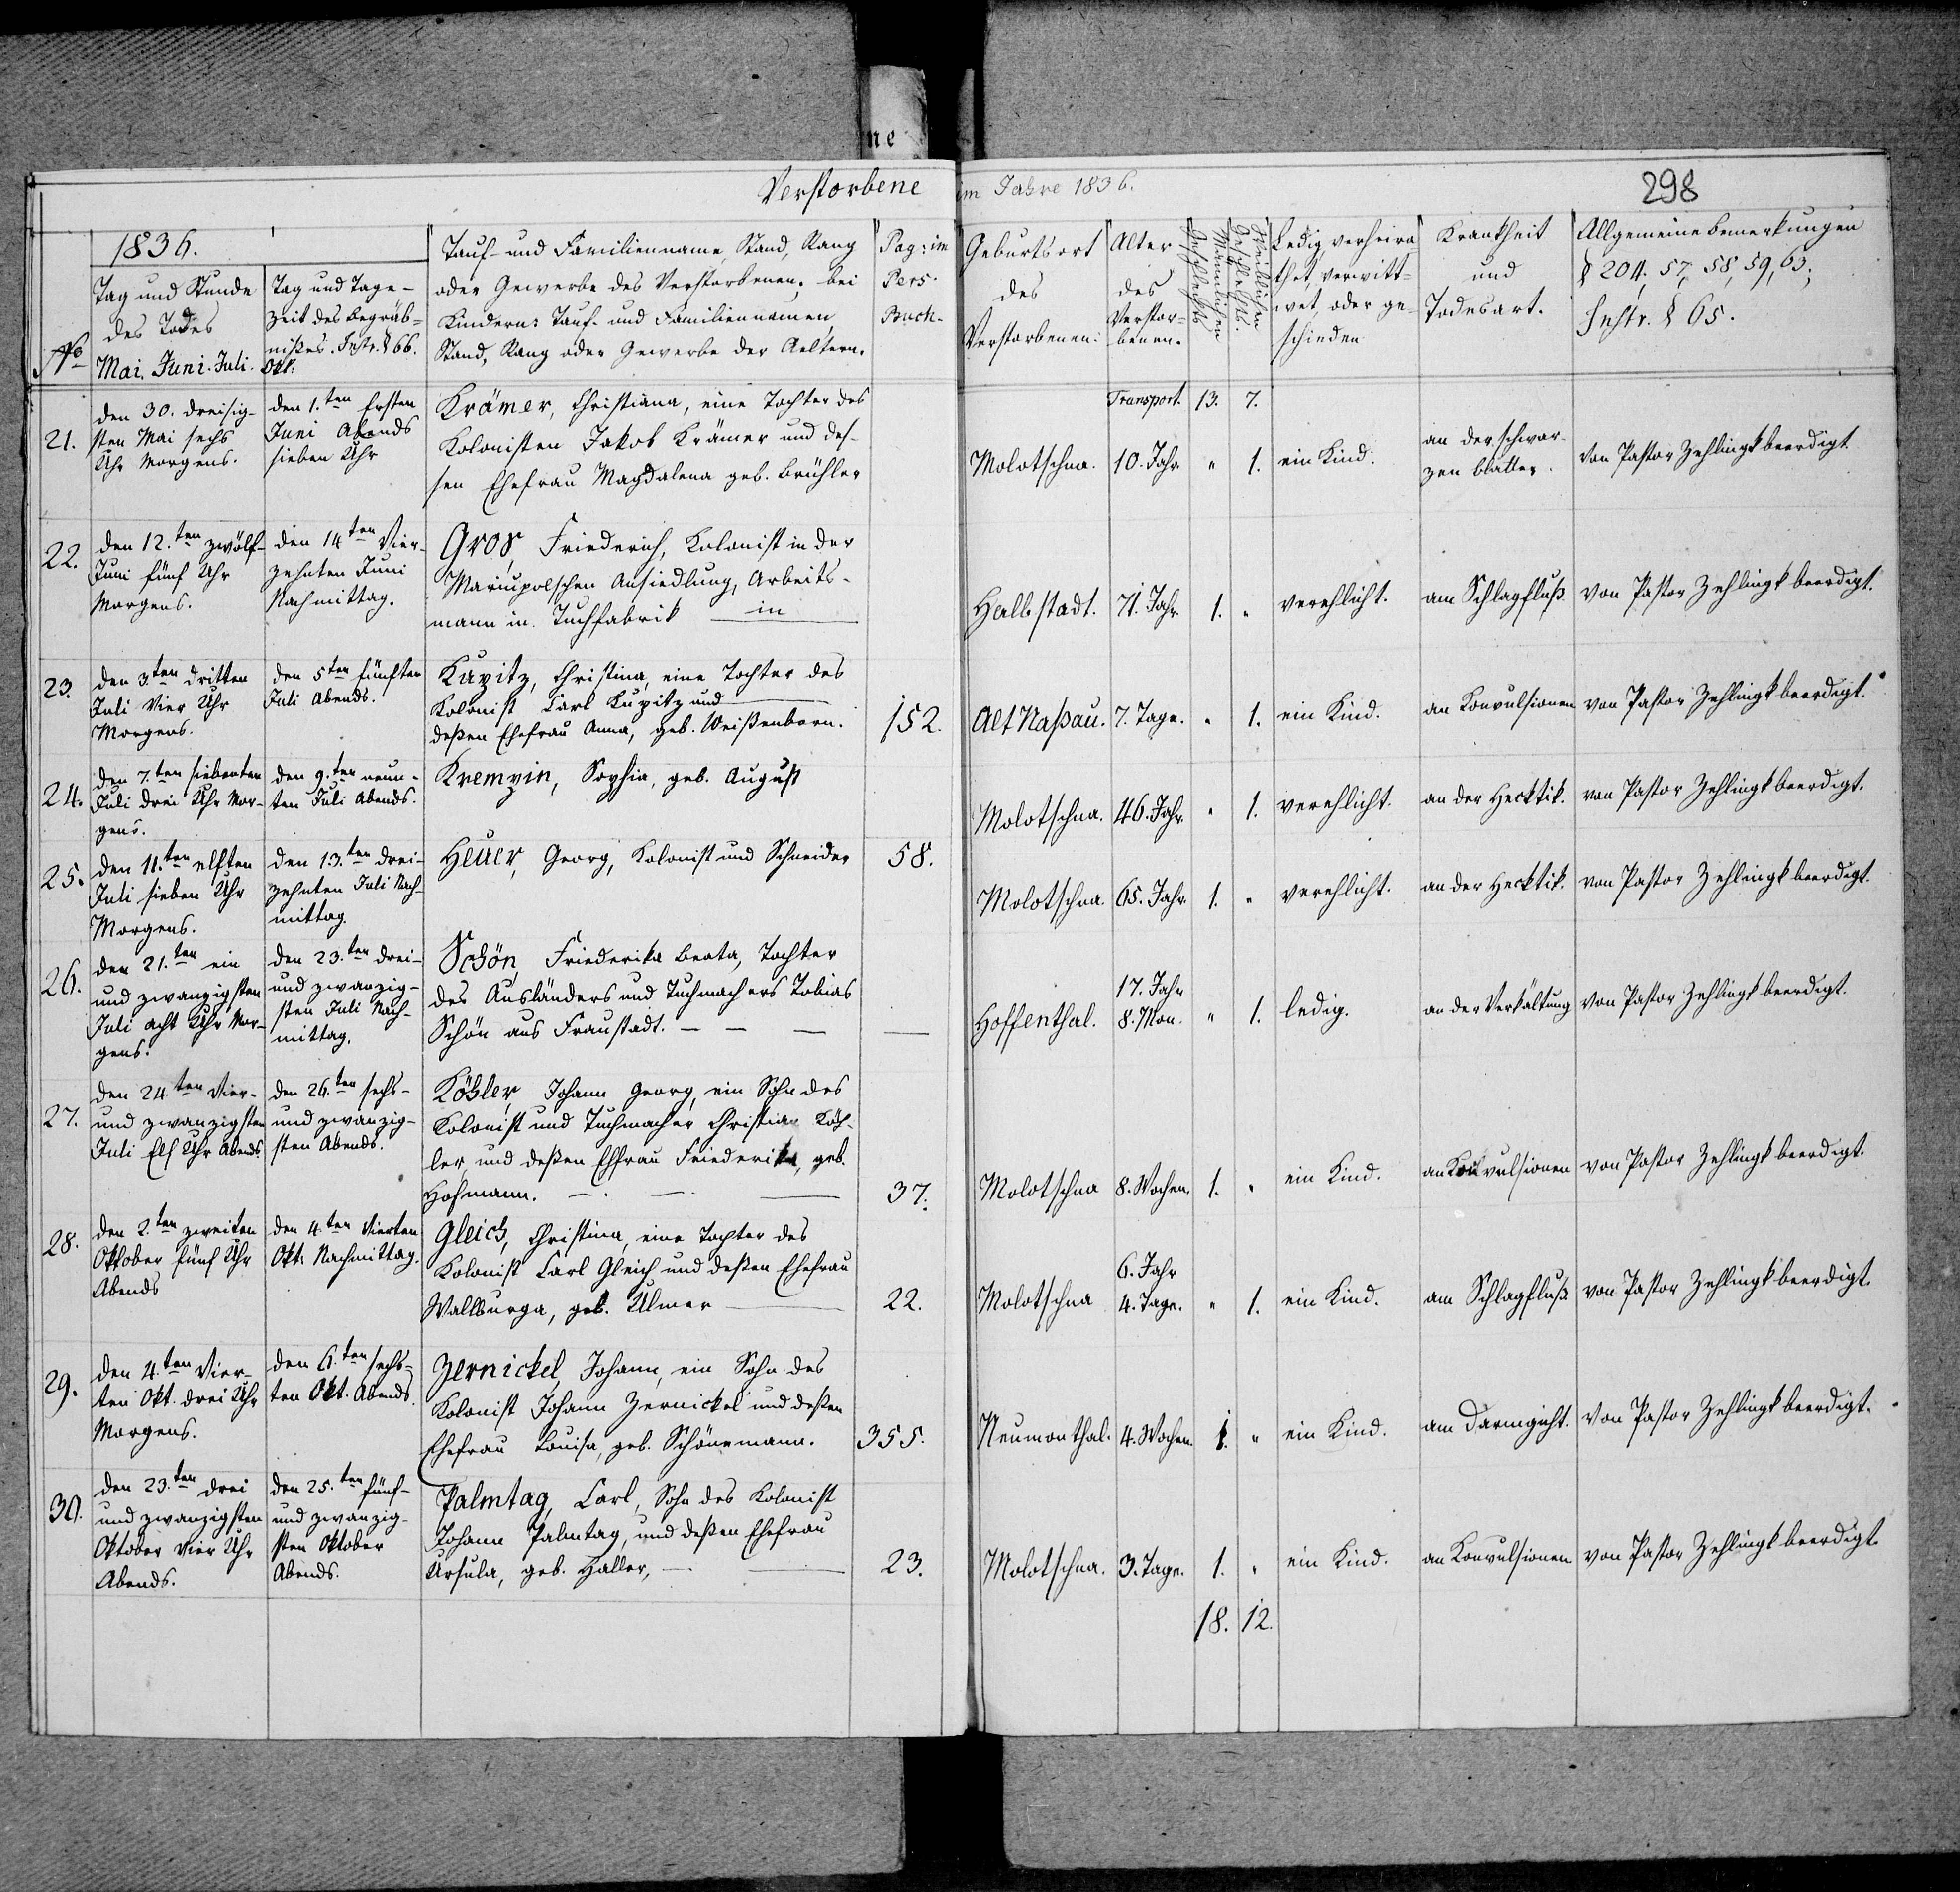 ne
Verstorbene im Jahre 1836.
298
1836.
No
Tag und Stunde
des Todes
Mai. Juni. Juli.
Tag und Tage-
zeit des Begräb-
nißes. Instr. § 66.
Okt:
Tauf- und Familienname, Stand, Rang
oder Gewerbe des Verstorbenen; bei
Kindern: Tauf- und Familiennamen,
Stand, Rang oder Gewerbe der Aeltern.
Pag: im
Pers.
Buch.
Geburtsort
des
Verstorbenen:
Alter
des
Verstor-
benen.
Männlichen
Geschlechts
Weiblichen
Geschlechts.
Ledig verheira
thet, verwitt-
wet, oder ge-
schieden
Krankheit
und
Todesart.
Allgemeine Bemerkungen
§ 204, 57, 58, 59, 63;
Instr. § 65.
Transport. 13. 7.
21.
den 30. dreisig-
sten Mai sechs
Uhr Morgens.
den 1.ten Ersten
Juni Abends
sieben Uhr
Krämer, Christiana, eine Tochter des
Kolonisten Jakob Krämer und des-
sen Ehefrau Magdalena geb. Brühler
Molotschna. 10. Jahr. " 1. ein Kind.
an der schwar-
zen blatter.
von Pastor Zehlingk beerdigt.
22.
den 12.ten zwölf-
Juni fünf Uhr
Morgens.
den 14ten Vier-
zehnten Juni
Nachmittag.
Gros, Friederich, Kolonist in der
Mariupolschen Ansiedlung, Arbeits-
mann in Tuchfabrik in
Halbstadt. 71. Jahr 1. " verehlicht. am Schlagfluß von Pastor Zehlingk beerdigt.
23.
den 3.ten dritten
Juli Vier Uhr
Morgens.
den 5ten fünften
Juli Abends.
Kupitz, Christina, eine Tochter des
Kolonist Carl Kupitz und
deßen Ehefrau Anna, geb. Weißenborn.
152.
Alt Naßau. 7. Tage. " 1. ein Kind. an Konvulsionen von Pastor Zehlingk beerdigt.
24.
den 7.ten siebenten
Juli drei Uhr Mor-
gens.
den 9.ten neun-
ten Juli Abends.
Krempin, Sophia, geb. August
Molotschna. 46. Jahr. " 1. verehlicht. an der Hecktik. von Pastor Zehlingk beerdigt.
25.
den 11.ten elften
Juli sieben Uhr
Morgens.
den 13.ten drei-
zehnten Juli Nach-
mittag.
Heuer, Georg, Kolonist und Schneider
58.
Molotschna. 65. Jahr. 1. " verehlicht. an der Hecktik. von Pastor Zehlingk beerdigt.
26.
den 21.ten ein
und zwanzigsten
Juli acht Uhr Mor-
gens.
den 23.ten drei-
und zwanzig-
sten Juli Nach-
mittag.
Schön, Friederika Beata, Tochter
des Ausländers und Tuchmachers Tobias
Schön aus Fraustadt. — — — —
Hoffenthal.
17. Jahr
8. Mon.
" 1. ledig. an der Verkältung von Pastor Zehlingk beerdigt.
27.
den 24.ten Vier-
und zwanzigsten
Juli Elf Uhr Abends.
den 26.ten sechs-
und zwanzig-
sten Abends.
Köhler, Johann Georg, ein Sohn des
Kolonist und Tuchmacher Christian Köh-
ler, und deßen Ehfrau Friederika, geb.
Hofmann. — — —
37.
Molotschna 8. Wochen. 1. " ein Kind. an Konvulsionen von Pastor Zehlingk beerdigt.
28.
den 2.ten zweiten
Oktober fünf Uhr
Abends
den 4ten Vierten
Okt: Nachmittag.
Gleich, Christina, eine Tochter des
Kolonist Carl Gleich und deßen Ehefrau
Wallburga, geb. Ulmer
22.
Molotschna
6. Jahr
4. Tage.
" 1. ein Kind. am Schlagfluß von Pastor Zehlingk beerdigt.
29.
den 4.ten Vier-
ten Okt. drei Uhr
Morgens.
den 6.ten sechs-
ten Okt. Abends.
Zernickel, Johann, ein Sohn des
Kolonist Johann Zernickel und deßen
Ehefrau Louisa, geb. Schönemann.
355.
Neumonthal. 4. Wochen. 1. " ein Kind. am Darmgicht. von Pastor Zehlingk beerdigt.
30.
den 23.ten drei
und zwanzigsten
Oktober Vier Uhr
Abends.
den 25.ten fünf-
und zwanzig-
sten Oktober
Abends.
Palmtag, Carl, Sohn des Kolonist
Johann Palmtag, und deßen Ehefrau
Ursula, geb. Haller, — —
23.
Molotschna. 3. Tage. 1. " ein Kind. an Konvulsionen von Pastor Zehlingk beerdigt.
18. 12.